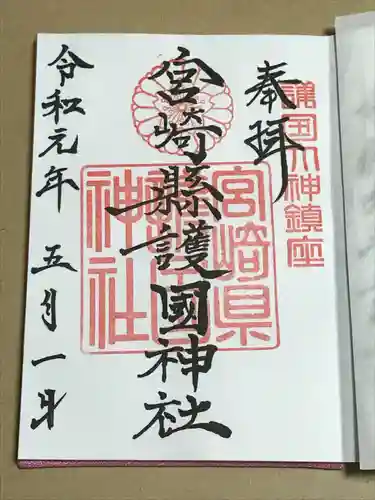 奉拝
諸国大神鎮座
宮崎縣護國神社
宮崎県護国神社
令和元年五月一日